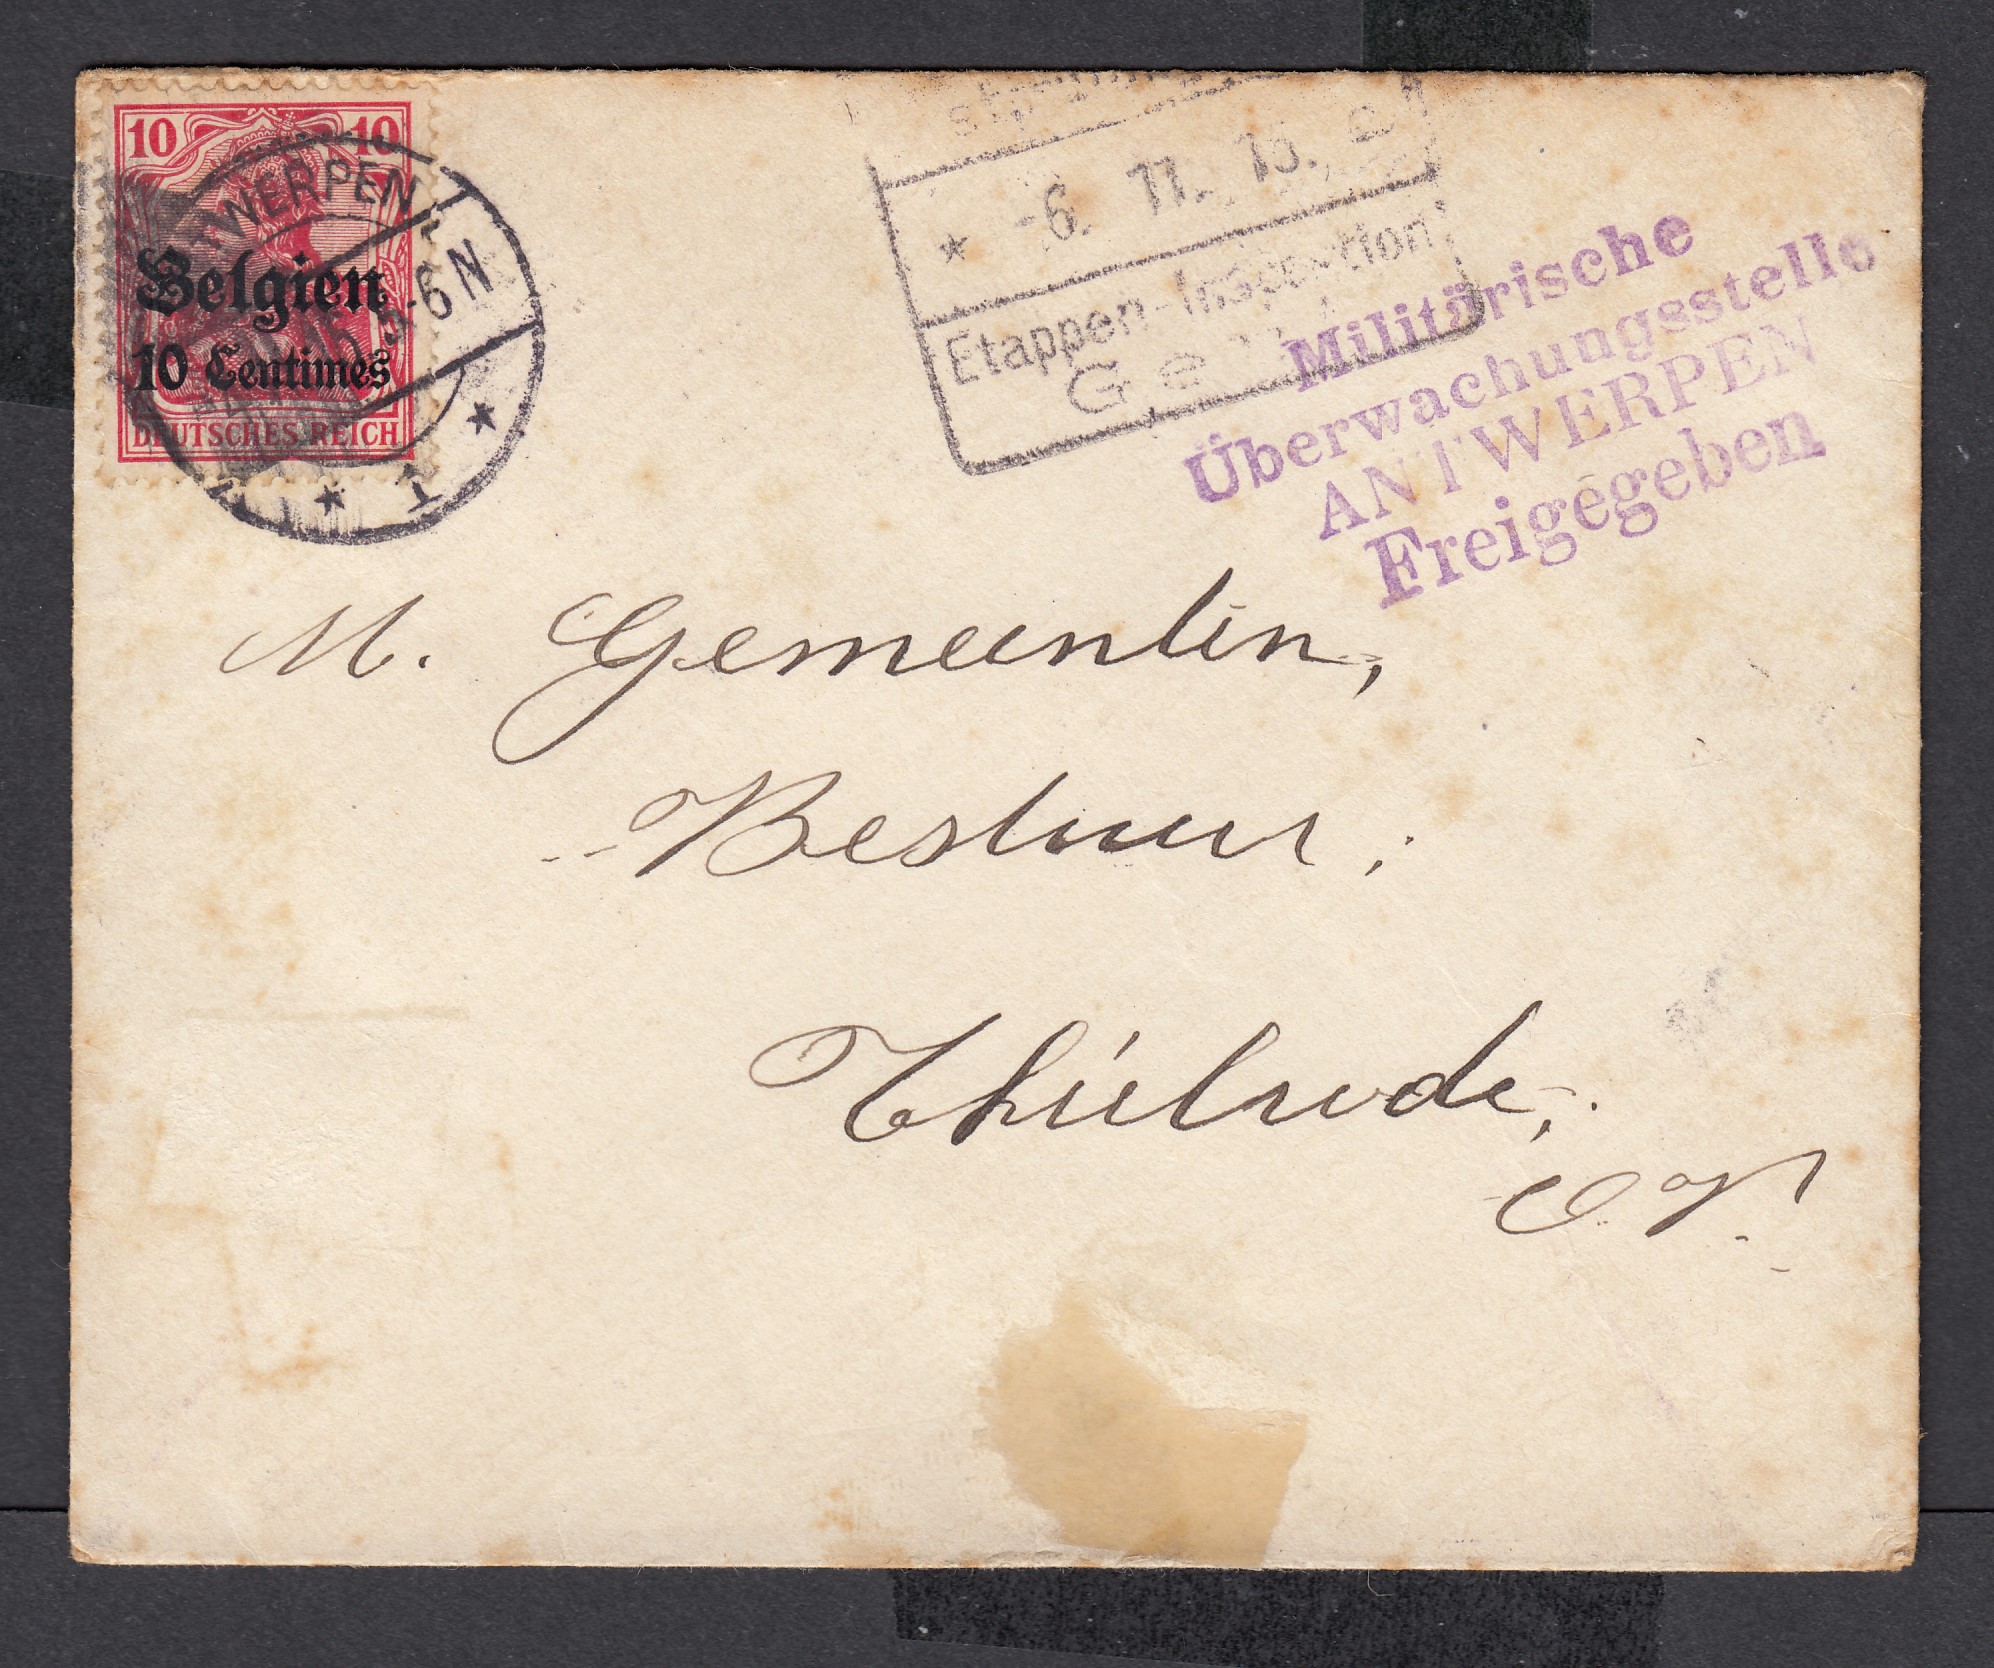 10 10
Belgien
10 Centimes
DEUTSCHES REICH
TWERPEN
5-6 N
* 1 *
* -6. 11. 15. e
Etappen-Inspection
Gent
Militärische
Überwachungsstelle
ANTWERPEN
Freigegeben
M. Gemeenten,
Bestuur,
Thielrode,
O V.